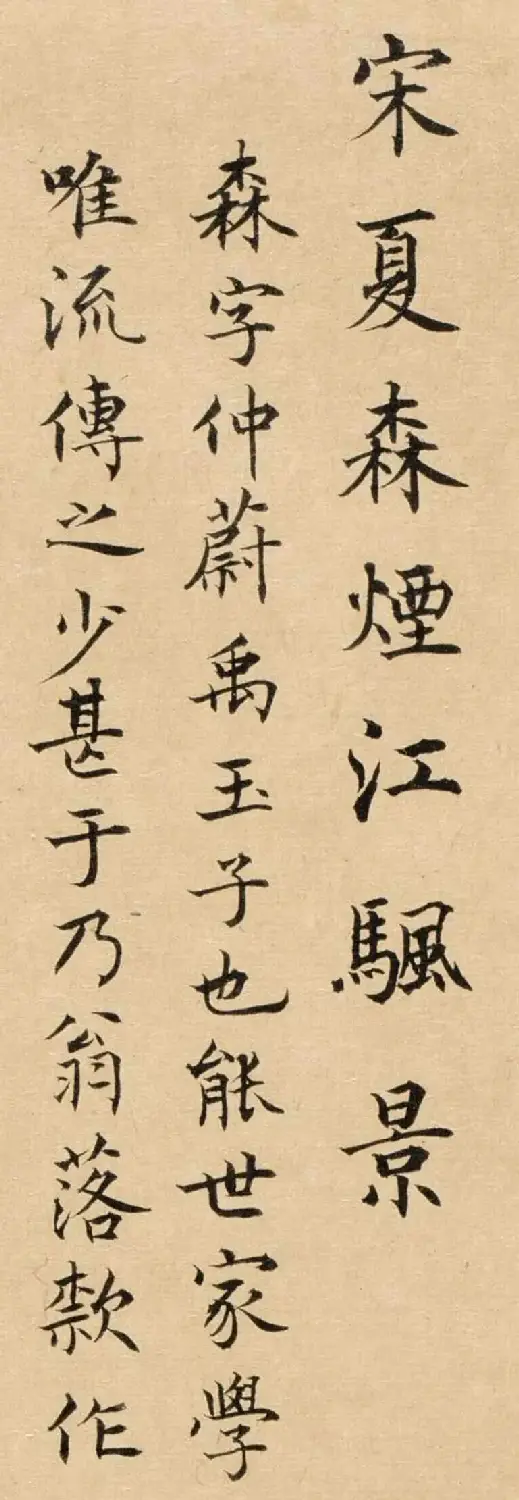 宋夏森煙江颿景
森字仲蔚禹玉子也能世家學
唯流傳之少甚于乃翁落款作